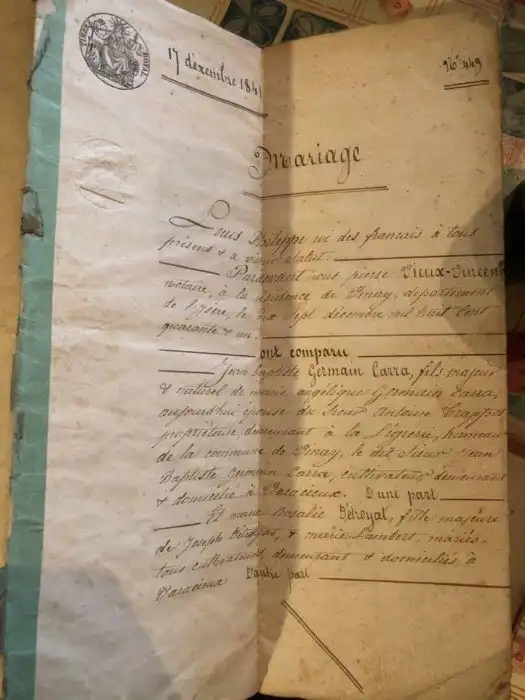 TIMBRE ROYAL
17 décembre 1841
N° 449
Mariage
Louis Philippe roi des français à tous
présens & a venir salut.
Pardevant nous pierre Vieux-Vincent
notaire, à la résidence de Vinay, département
de l'Isère, le dix sept décembre mil huit cent
quarante & un.
ont comparu
Jean baptiste Germain Carra, fils majeur
& naturel de marie angélique Germain Carra,
aujourd'hui épouse du Sieur Antoine
propriétaire demeurant à la hameau
de la commune de Vinay, le dit Sieur Jean
Baptiste Germain Carra, cultivateur demeurant
& domicilié à Varacieux. D'une part
Et marie Rosalie Détroyat, fille majeure
de Joseph Détroyat, & marie Lambert, mariés,
tous cultivateurs, demeurant & domiciliés à
Varacieux D'autre part